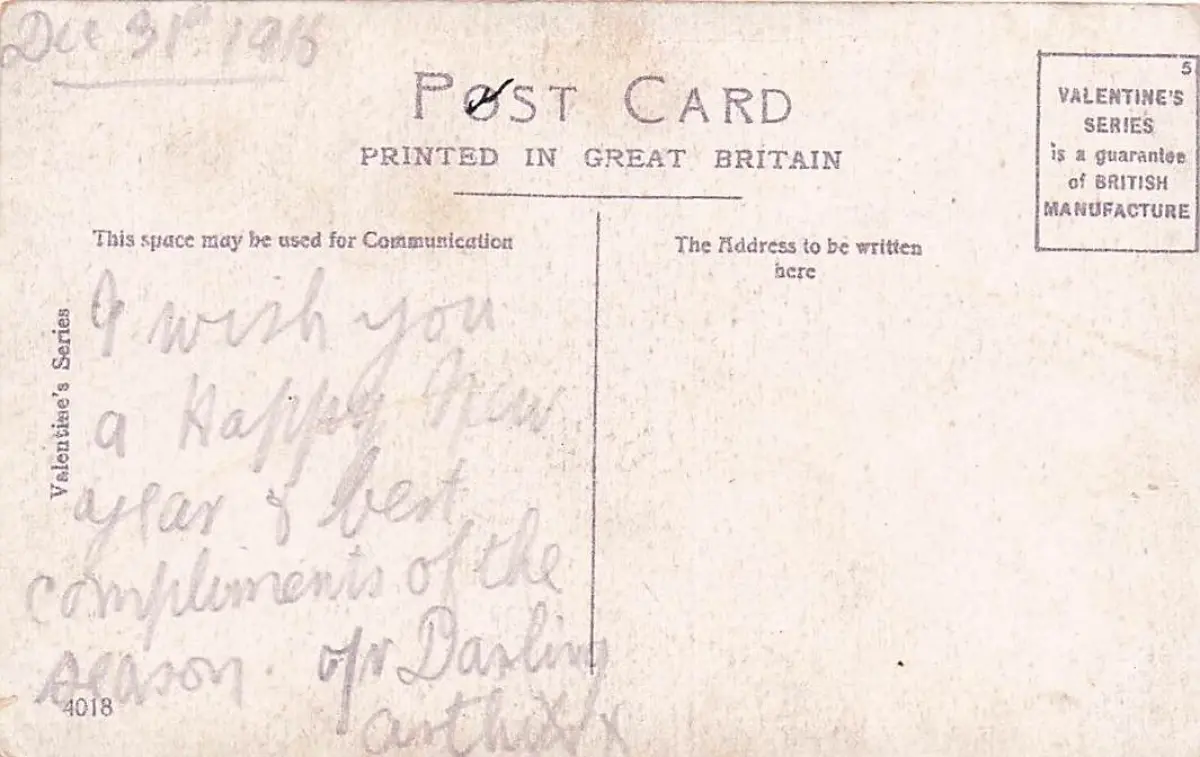 Dec 31st 1916
POST CARD
PRINTED IN GREAT BRITAIN
5
VALENTINE'S
SERIES
is a guarantee
of BRITISH
MANUFACTURE
This space may be used for Communication
The Address to be written
here
Valentine's Series
I wish you
a Happy New
year & best
compliments of the
season. Darling
4018